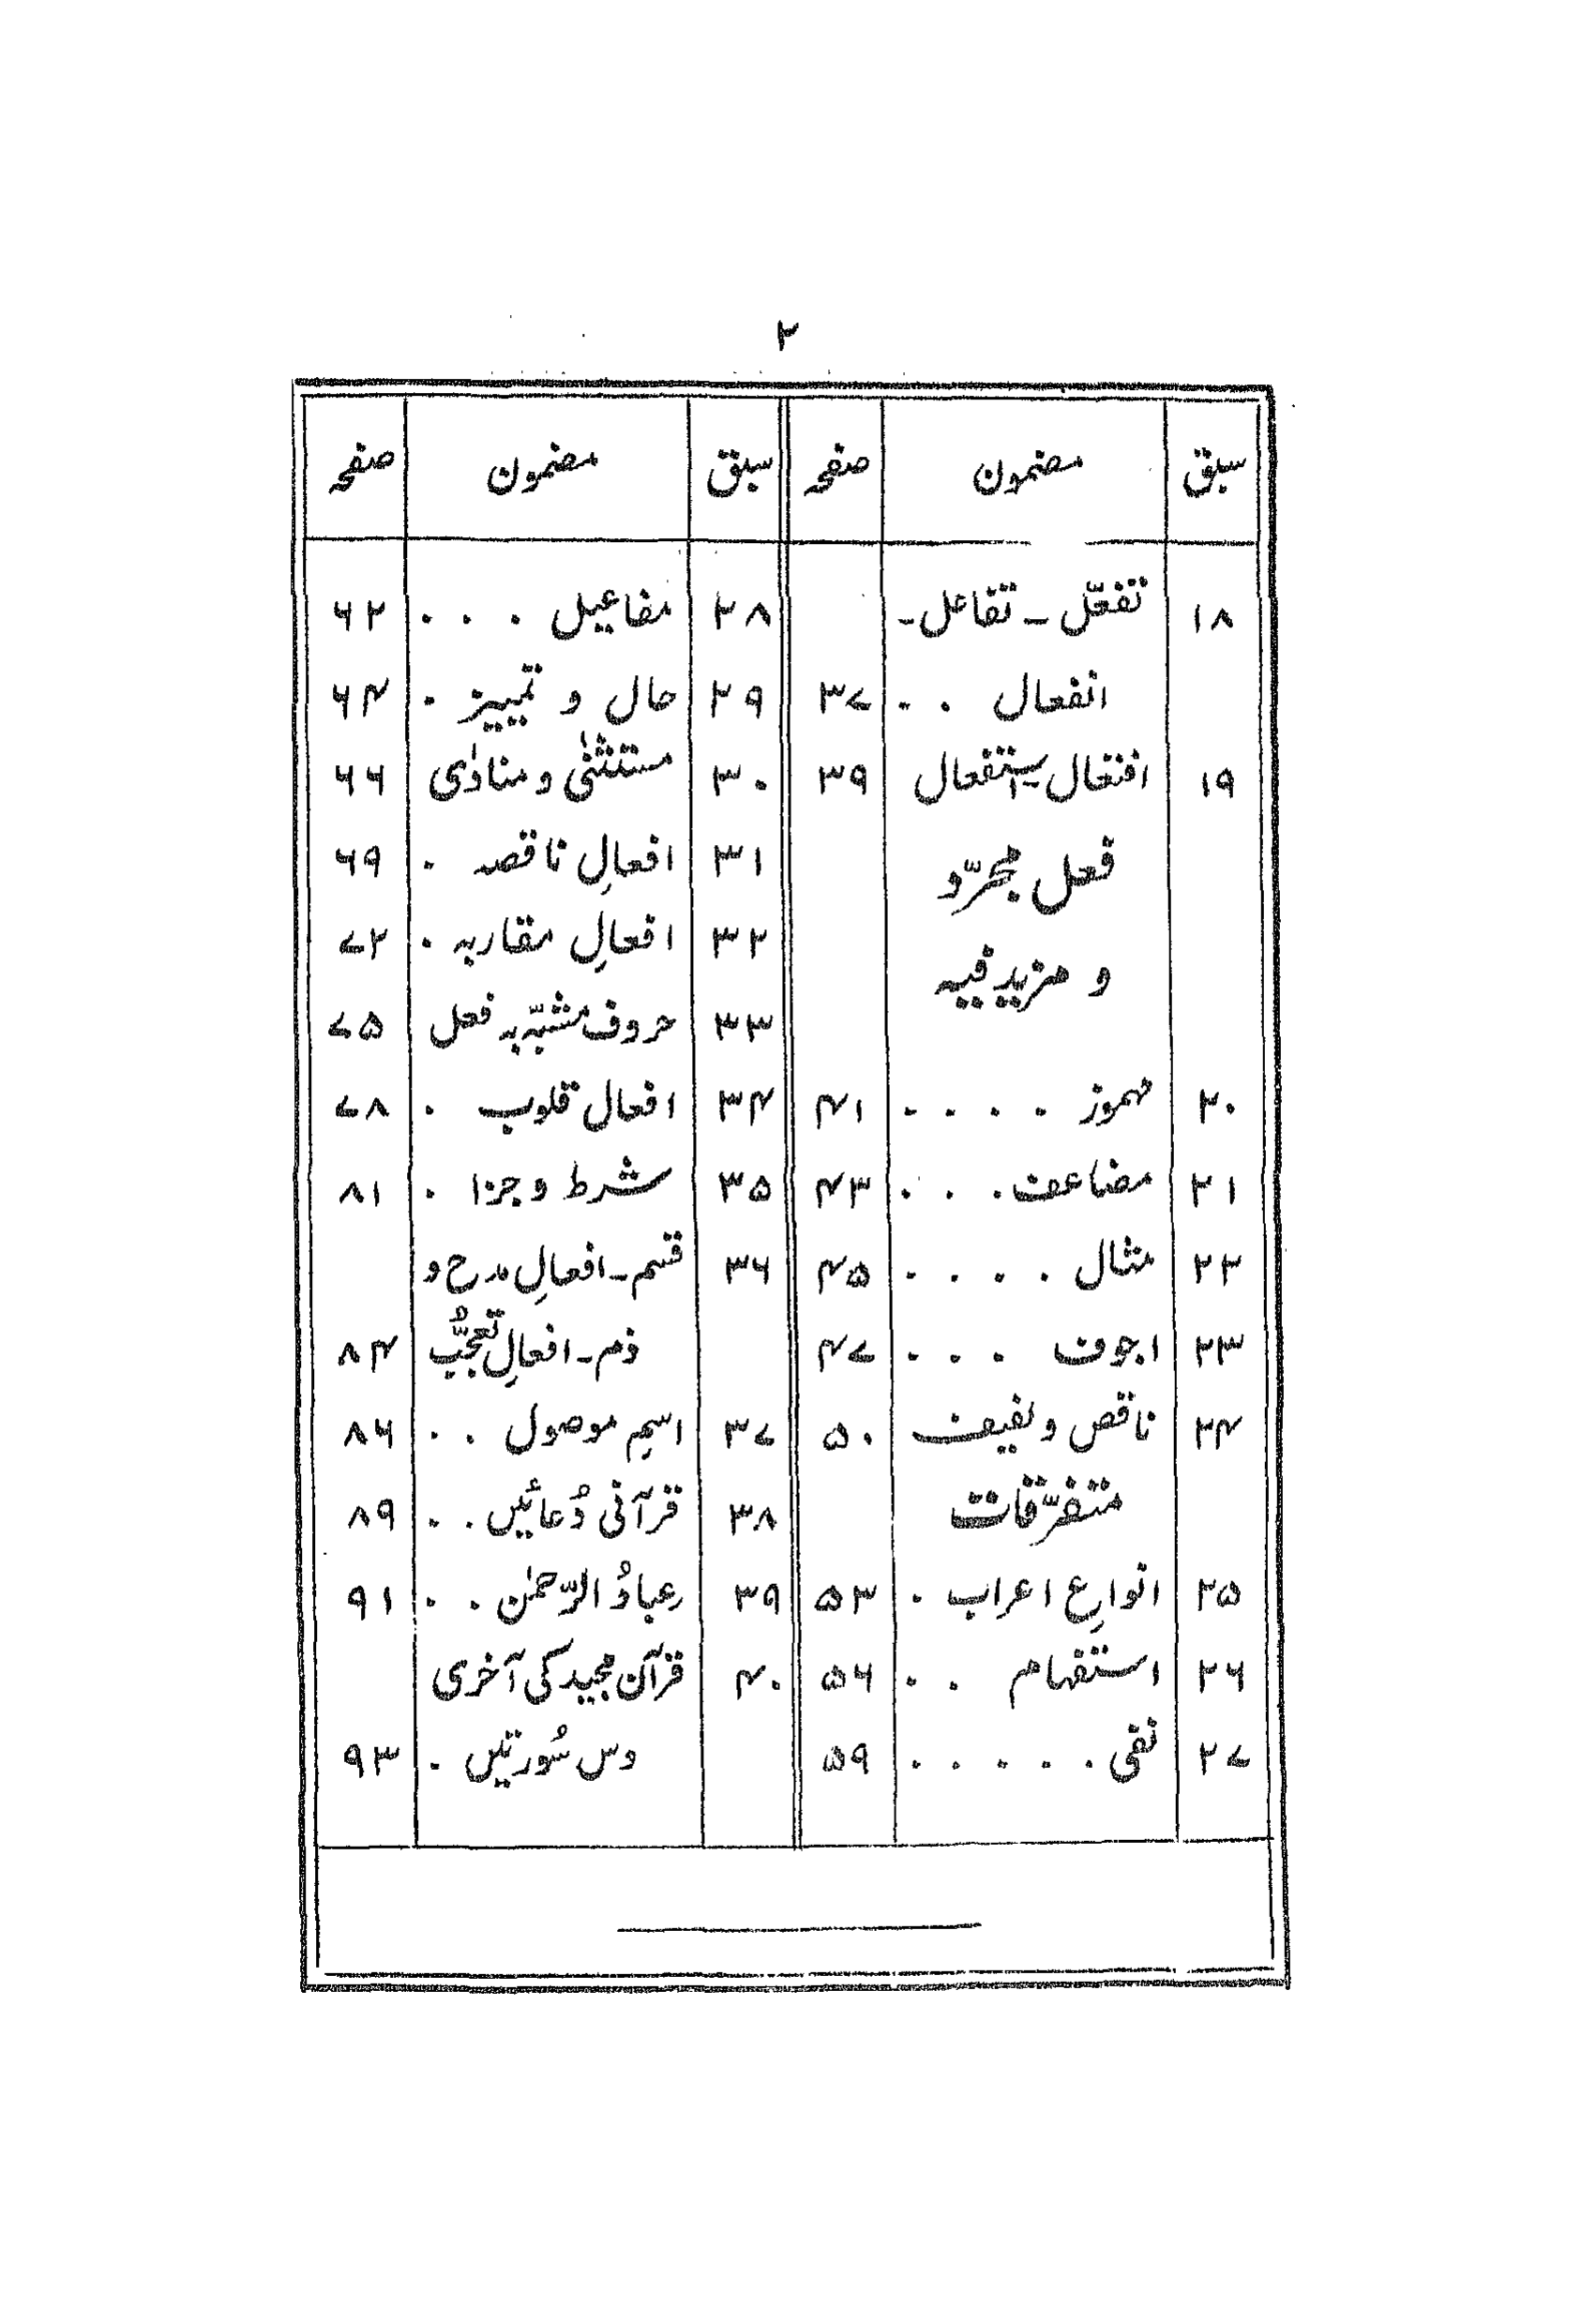 ۲
سبق مضمون صفحہ
۱۸ تفعّل ۔ تفاعل ۔
انفعال . . ۳۷
۱۹ افتعال ۔ استفعال ۳۹
فعل مجرّد
و مزید فیہ
۲۰ مہموز . . . . ۴۱
۲۱ مضاعف . . . ۴۳
۲۲ مثال . . . . ۴۵
۲۳ اجوف . . . ۴۷
۲۴ ناقص و لفیف ۵۰
متفرّقات
۲۵ انواعِ اعراب . ۵۳
۲۶ استفہام . . ۵۶
۲۷ نفی . . . . . ۵۹
سبق مضمون صفحہ
۲۸ مفاعیل . . . ۶۲
۲۹ حال و تمییز . ۶۴
۳۰ مستثنٰی و منادٰی ۶۶
۳۱ افعالِ ناقصہ . ۶۹
۳۲ افعالِ مقاربہ . ۷۲
۳۳ حروف مشبّہ بہ فعل ۷۵
۳۴ افعال قلوب . ۷۸
۳۵ شرط و جزا . ۸۱
۳۶ قسم ۔ افعالِ مدح و
ذم ۔ افعالِ تعجُّب ۸۴
۳۷ اسمِ موصول . . ۸۶
۳۸ قرآنی دُعائیں . . ۸۹
۳۹ عِبادُ الرّحمٰن . . ۹۱
۴۰ قرآن مجید کی آخری
دس سُورتیں . ۹۳